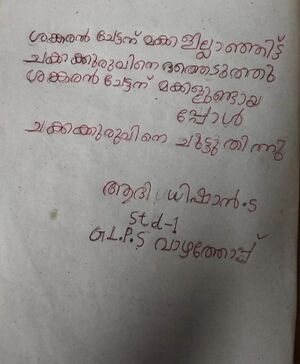 ശങ്കരൻ ചേട്ടന് മക്കളില്ലാഞ്ഞിട്ട്
ചക്കക്കുരുവിനെ ദത്തെടുത്തു
ശങ്കരൻ ചേട്ടന് മക്കളുണ്ടായ
പ്പോൾ
ചക്കക്കുരുവിനെ ചുട്ടുതിന്നു
ആദി ധിഷാൻ.S
Std-1
G.L.P.S വാഴത്തോപ്പ്